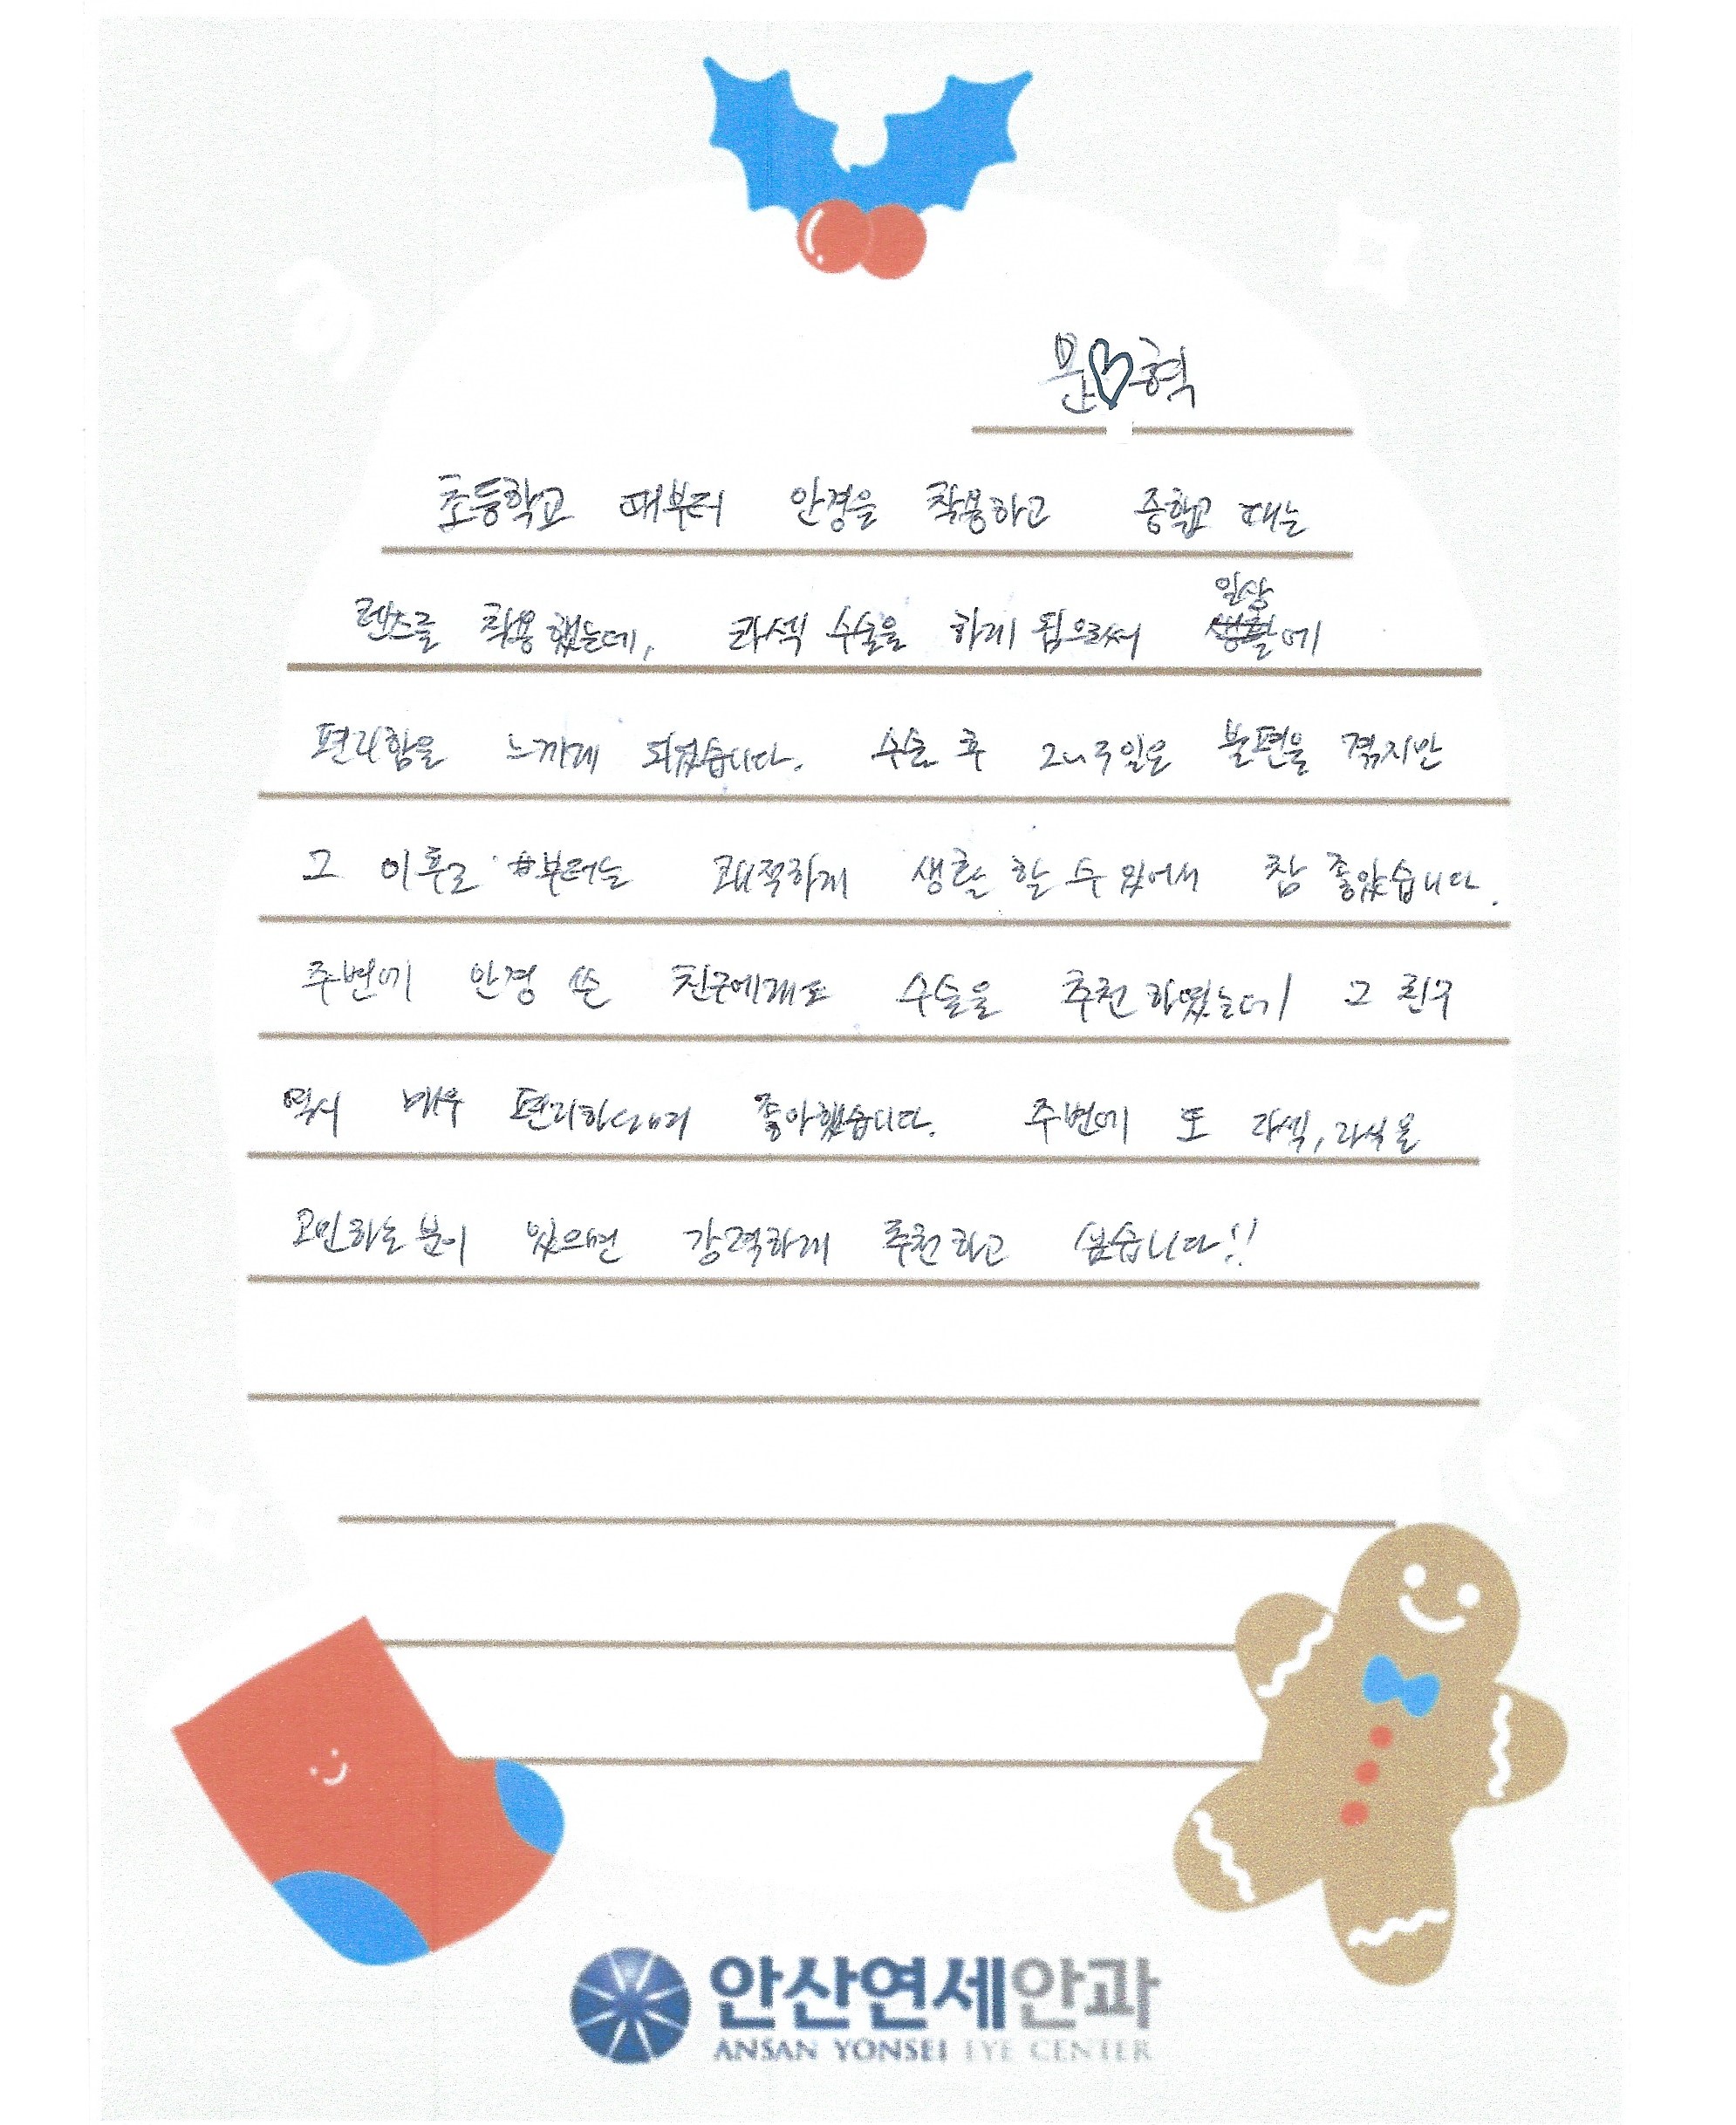 문♡혁
초등학교 때부터 안경을 착용하고 중학교 때는
렌즈를 착용했는데, 라섹 수술을 하게 됨으로써 일상에
편리함을 느끼게 되었습니다. 수술 후 2~3주일은 불편을 겪지만
그 이후로부터는 쾌적하게 생활 할 수 있어서 참 좋았습니다.
주변에 안경 쓴 친구에게도 수술을 추천하였는데 그 친구
역시 매우 편리하다며 좋아했습니다. 주변에 또 라섹, 라식을
고민하는 분이 있으면 강력하게 추천하고 싶습니다!!
안산연세안과
ANSAN YONSEI EYE CENTER